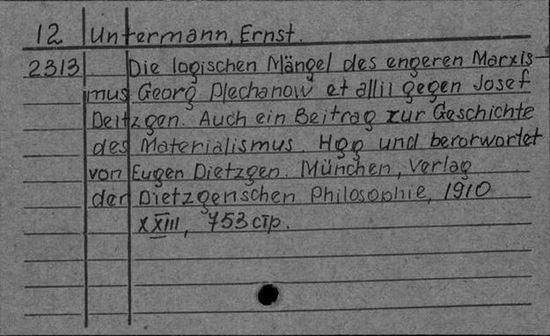 12 Untermann, Ernst.
2313 Die logischen Mängel des engeren Marxis-
mus Georg Plechanow et allii gegen Josef
Deitzgen. Auch ein Beitrag zur Geschichte
des Materialismus. Hgg und berorwortet
von Eugen Dietzgen. München, Verlag
der Dietzgenschen Philosophie, 1910
XXIII, 753 стр.